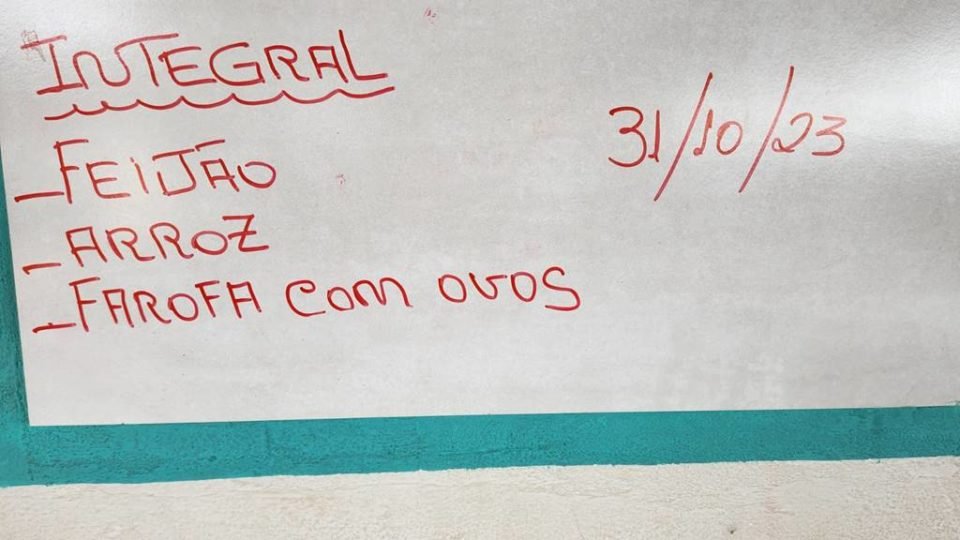 INTEGRAL
31/10/23
_FEIJÃO
_ARROZ
_FAROFA COM OVOS